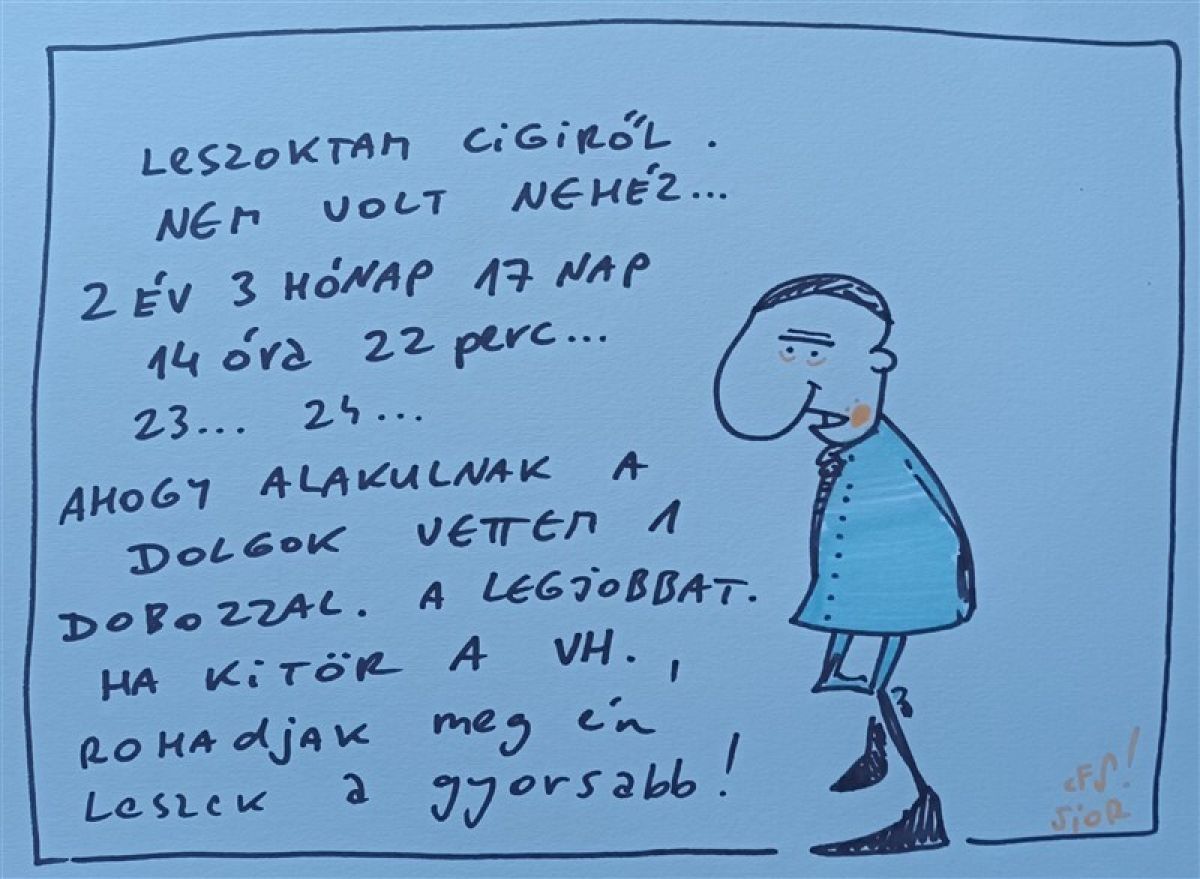 LESZOKTAM CIGIRŐL.
NEM VOLT NEHÉZ...
2 ÉV 3 HÓNAP 17 NAP
14 óra 22 perc...
23... 24...
AHOGY ALAKULNAK A
DOLGOK VETTEM 1
DOBOZZAL. A LEGJOBBAT.
HA KITÖR A VH.,
ROHADJAK meg én
LESZEK a gyorsabb!
SIOR